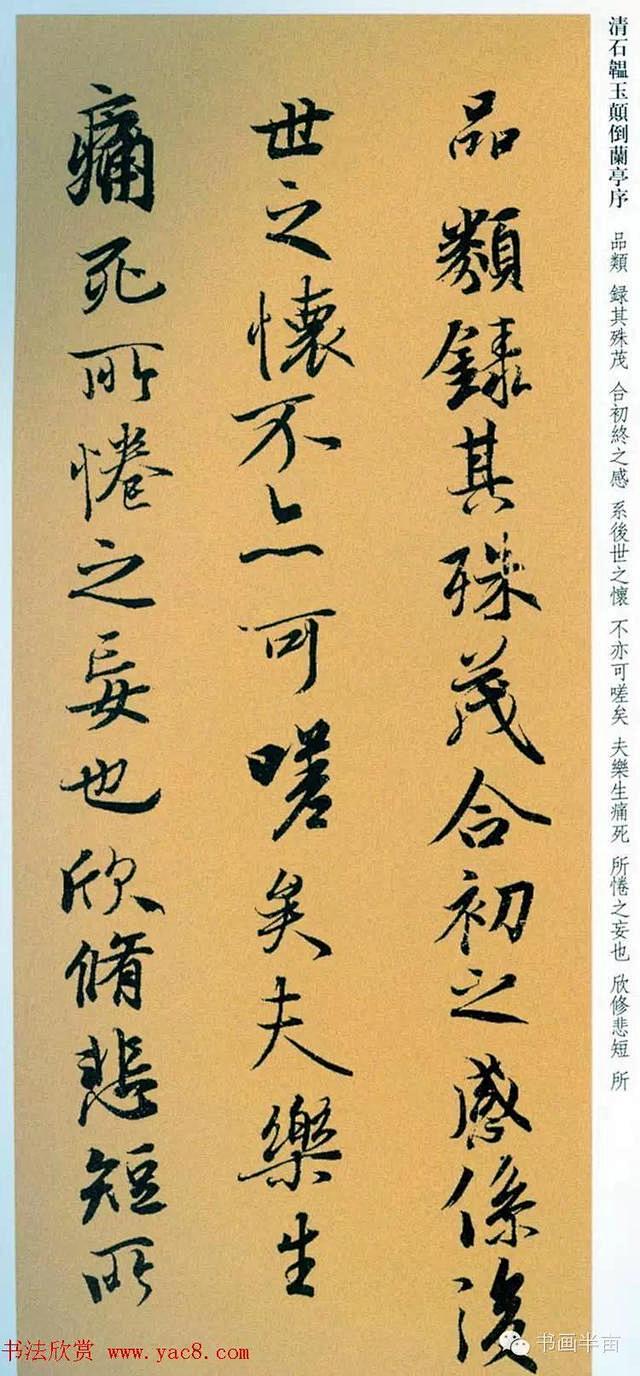 清石韞玉顛倒蘭亭序 品類 録其殊茂 合初終之感 系後世之懷 不亦可嗟矣 夫樂生痛死 所惓之妄也 欣修悲短 所
品類録其殊茂合初之感係後
世之懷不亦可嗟矣夫樂生
痛死所惓之妄也欣脩悲短所
书法欣赏 www.yac8.com
书画半亩